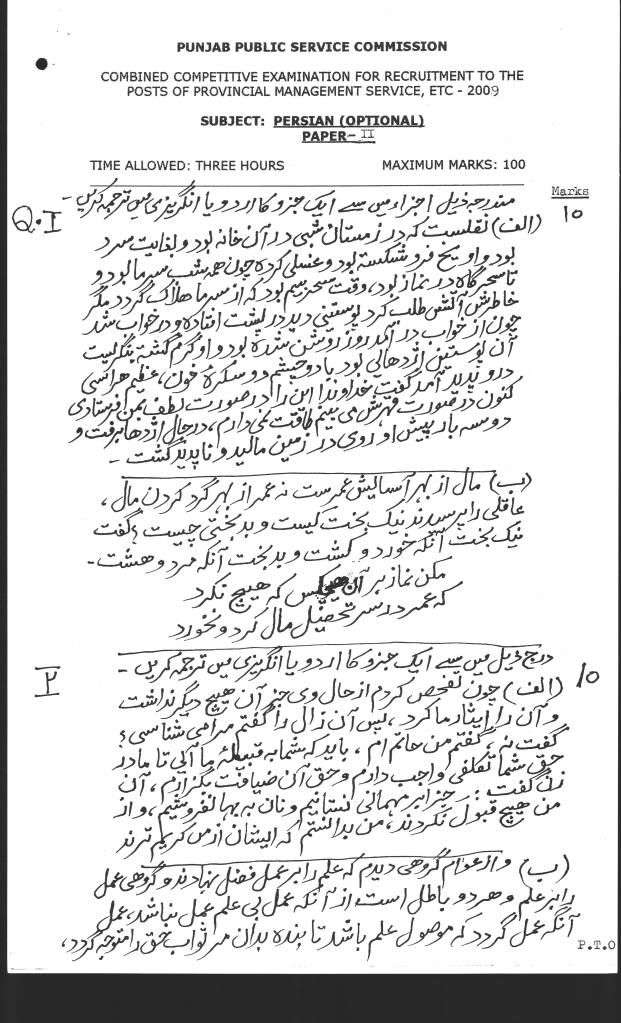 PUNJAB PUBLIC SERVICE COMMISSION
COMBINED COMPETITIVE EXAMINATION FOR RECRUITMENT TO THE
POSTS OF PROVINCIAL MANAGEMENT SERVICE, ETC - 2009
SUBJECT: PERSIAN (OPTIONAL)
PAPER- II
TIME ALLOWED: THREE HOURS MAXIMUM MARKS: 100
Marks
Q.I مندرجہ ذیل اجزاء میں سے ایک جزو کا اردو یا انگریزی میں ترجمہ کریں - 10
(الف) نقلست که در زمستان شبی در آن خانه بود و بغایت سرد
بود و او یخ فرو شکسته بود و غسلی کرده چون همه شب سرما بود و
تا سحرگاه در نماز بود، وقت سحر بیم بود که از سرما هلاک گردد مگر
خاطرش آتش طلب کرد پوستینی دید در پشت افتاده و در خواب شد
چون از خواب در آمد روز روشن شده بود و او گرم گشته بنگریست
آن پوستین اژدهائی بود با دو چشم دو سکرهٔ خون، عظیم هراسی
در و پدید آمد گفت خداوندا این را در صورت لطف بمن فرستادی
کنون در صورت قهرش می بینم طاقت نمی دارم، در حال اژدها برفت و
دو سه بار پیش او روی در زمین مالید و ناپدید گشت -
(ب) مال از بهر آسایش عمرست نه عمر از بهر گرد کردن مال،
عاقلی را پرسیدند نیک بخت کیست و بدبختی چیست؟ گفت
نیک بخت آنکه خورد و کشت و بدبخت آنکه مرد و هشت -
مکن نماز بر آن هیچ کس که هیچ نکرد
که عمر در سر تحصیل مال کرد و نخورد
۲ درج ذیل میں سے ایک جزو کا اردو یا انگریزی میں ترجمہ کریں - 10
(الف) چون تفحص کردم از حال وی جز آن هیچ دیگر نداشت
و آن را ایثار ما کرد، پس آن زال را گفتم مرا می شناسی؟
گفت نه، گفتم من حاتم ام، باید که شما به قبیلهٔ ما آئی تا ما در
حق شما تکلفی واجب دارم و حق آن ضیافت بگزارم، آن
زن گفت: جزا بر مهمانی نستانیم و نان به بها نفروشیم، و از
من هیچ قبول نکردند، من بدانستم که ایشان از من کریم ترند
(ب) و از عوام گروهی دیدم که علم را بر عمل فضل نهادند و گروهی عمل
را بر علم و هر دو باطل است از آنکه عمل بی علم عمل نباشد، عمل
آنگه عمل گردد که موصول علم باشد تا بنده بدان مر ثواب حق را متوجه گردد،
P.T.O